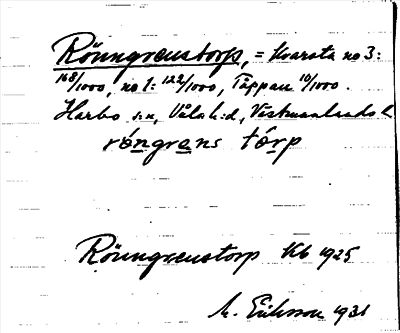 Rönngrenstorp, = Kvarsta no 3:
168/1000, no 1: 122/1000, Täppan 10/1000.
Harbo s:n, Våla h:d, Västmanlands l.
róngrens tórp
Rönngrenstorp Kb 1925
M. Eriksson 1931